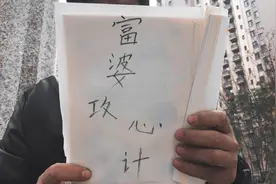 富
婆
攻
心
计